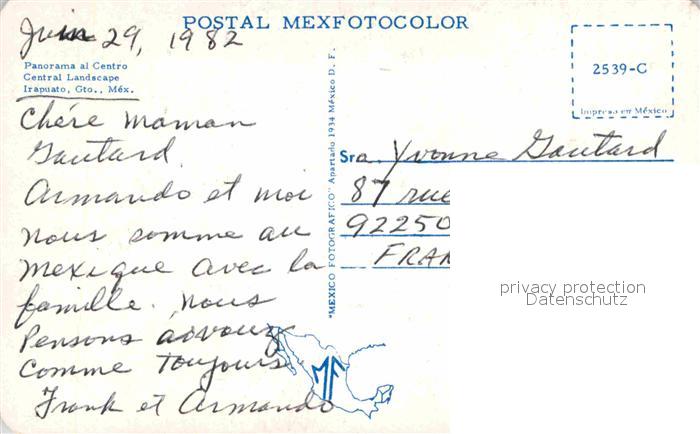 POSTAL MEXFOTOCOLOR
Juin 29, 1982
Panorama al Centro
Central Landscape
Irapuato, Gto., Méx.
Chére Maman
Gautard.
Armando et moi
nous somme au
Mexique avec la
famille. nous
Pensons a vous
Comme Toujours
Frank et Armando
"MEXICO FOTOGRAFICO" Apartado 1934 México D. F.
2539-C
Impreso en México
Sra. Yvonne Gautard
87 rue
92250
FRAN
privacy protection
Datenschutz
MF